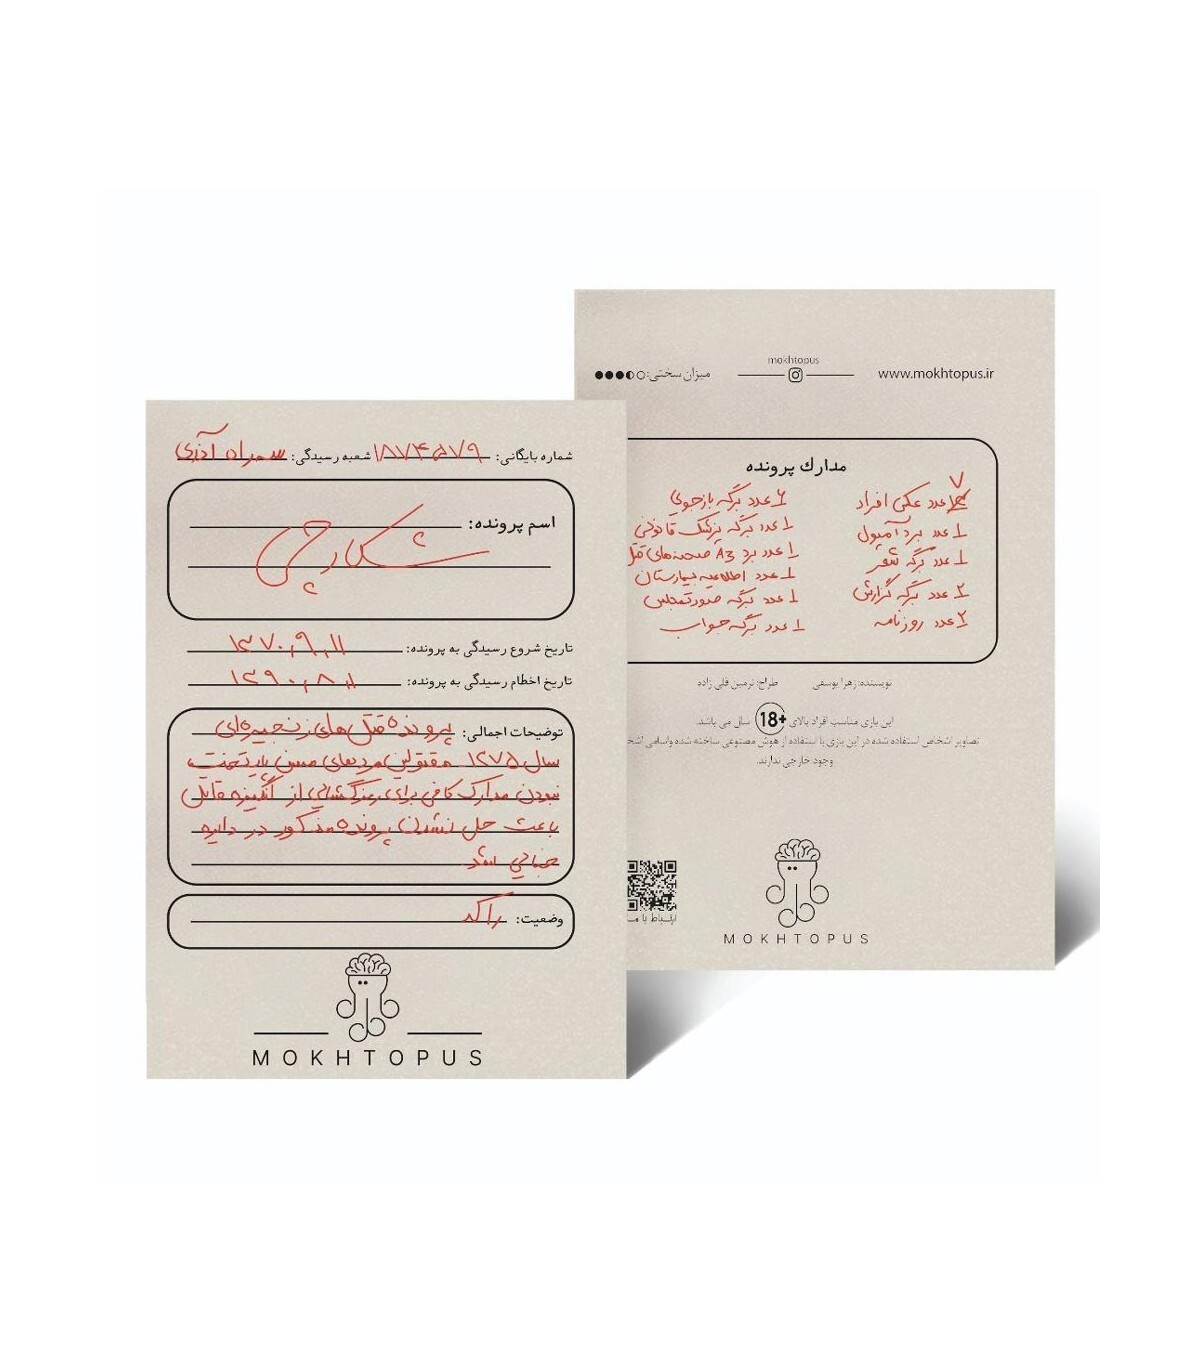 شماره بایگانی: ۱۸۷۴۵۷۹ شعبه رسیدگی: سهراه آذری
اسم پرونده:
شکارچی
تاریخ شروع رسیدگی به پرونده: ۱۳۷۰,۹,۱۱
تاریخ اخطام رسیدگی به پرونده: ۱۳۹۰,۸,۱
توضیحات اجمالی: پرونده قتل های زنجیره‌ای
سال ۱۲۷۵ مقتولین مردهای مسن پایتخت
نبودن مدارک کافی برای رمزگشایی از انگیزه قاتل
باعث حل نشدن پرونده مذکور در دایره
جنایی شد
وضعیت: راکد
MOKHTOPUS
mokhtopus
میزان سختی: www.mokhtopus.ir
مدارك پرونده
۷
عدد عکس افراد
۱ عدد برد آمپول
۱ عدد برگه شعر
۲ عدد برگه گزارش
۲ عدد روزنامه
۶ عدد برگه بازجویی
۱ عدد برگه پزشک قانونی
۱ عدد برد A3 صحنه‌های قتل
۱ عدد اطلاعیه بیمارستان
۱ عدد برگه صورتجلس
۱ عدد برگه جواب
نویسنده: زهرا یوسفی طراح: نرمین قلی زاده
این بازی مناسب افراد بالای 18+ سال می باشد.
تصاویر اشخاص استفاده شده در این بازی با استفاده از هوش مصنوعی ساخته شده واسامی
وجود خارجی ندارند.
ارتباط با
MOKHTOPUS